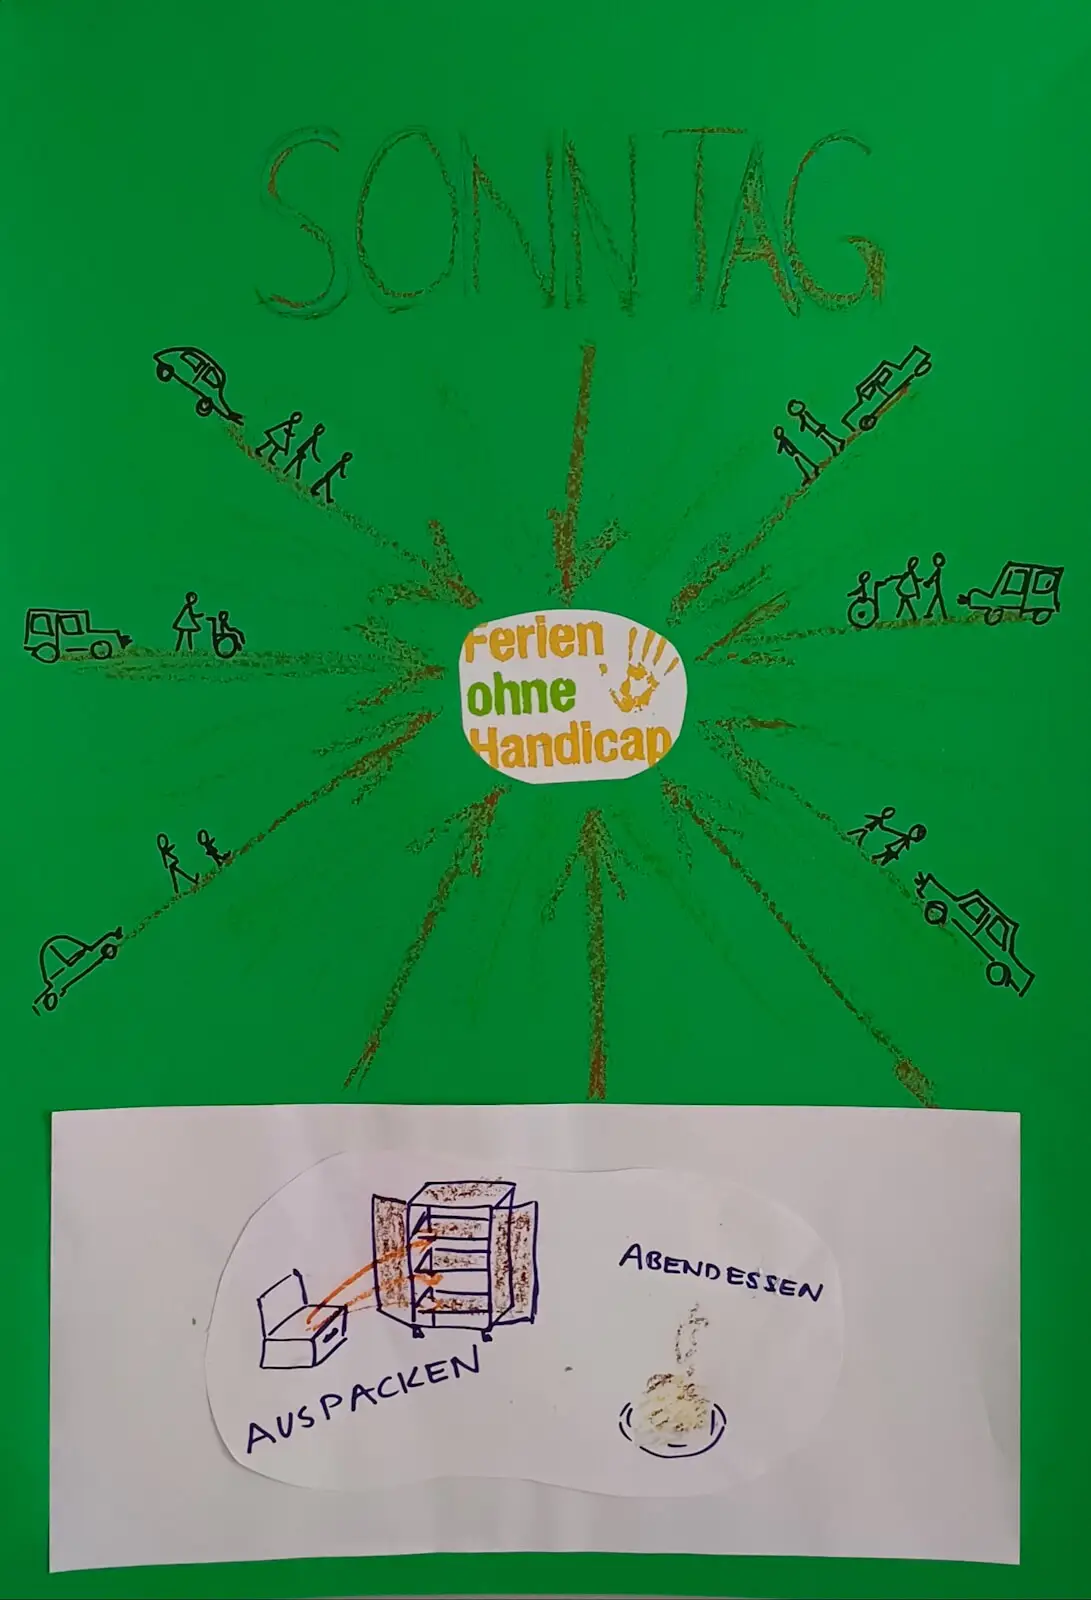 SONNTAG
Ferien
ohne
Handicap
ABENDESSEN
AUSPACKEN